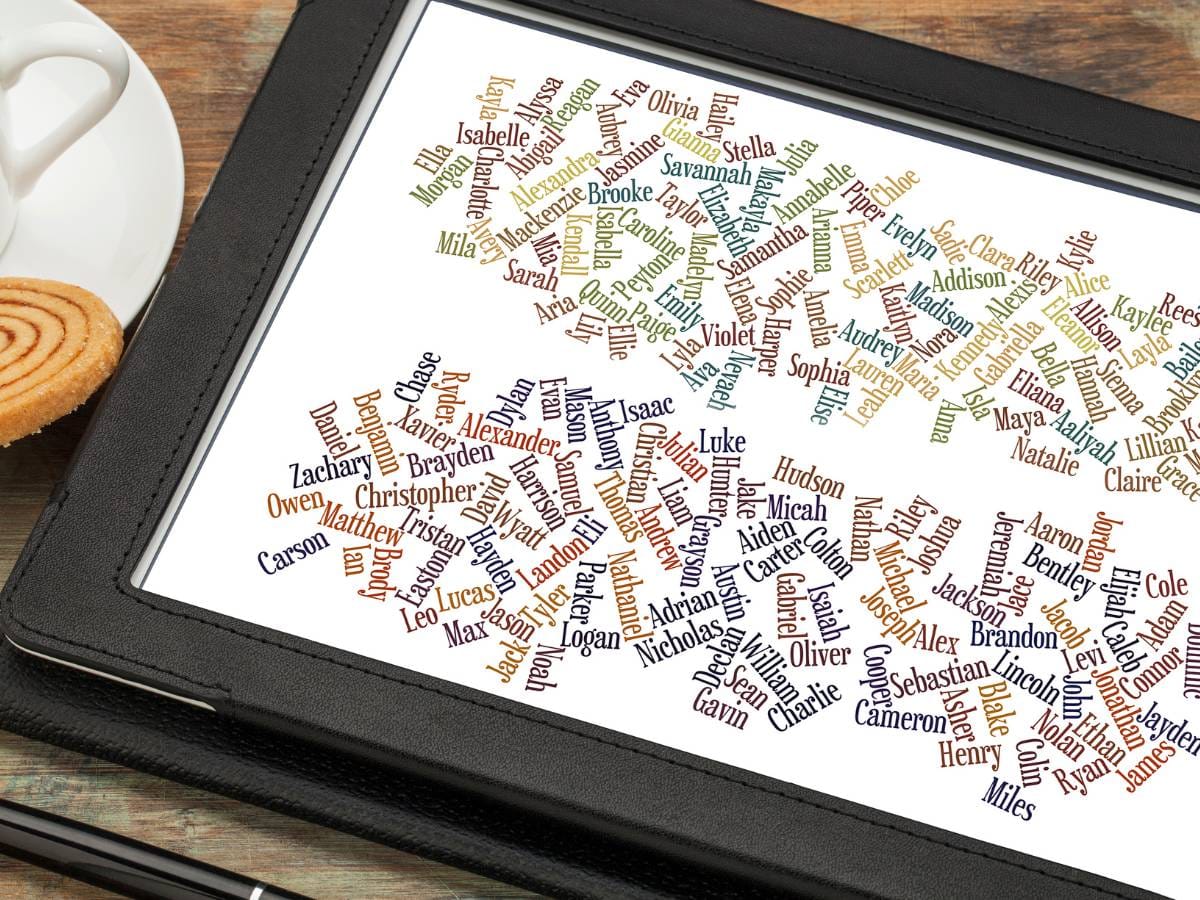 Kayla
Alyssa
Reagan
Eva
Olivia
Hailey
Isabelle
Abigail
Aubrey
Jasmine
Gianna
Stella
Julia
Ella
Morgan
Charlotte
Alexandra
Savannah
Makayla
Annabelle
Piper
Chloe
Mackenzie
Brooke
Taylor
Elizabeth
Avery
Mila
Mia
Kendall
Isabella
Caroline
Madelyn
Samantha
Arianna
Emma
Evelyn
Sadie
Clara
Riley
Kylie
Sarah
Peyton
Scarlett
Addison
Alexis
Alice
Aria
Liv
Quinn
Ellie
Paige
Emily
Elena
Sophie
Amelia
Kaitlyn
Madison
Eleanor
Allison
Kaylee
Rees
Violet
Harper
Audrey
Nora
Kennedy
Gabriella
Layla
Baile
Lyla
Ava
Nevaeh
Sophia
Lauren
Maria
Bella
Hannah
Sienna
Brookly
Elise
Leah
Anna
Isla
Eliana
Maya
Aaliyah
Natalie
Lillian
Claire
Grace
Chase
Ryder
Dylan
Evan
Mason
Anthony
Isaac
Daniel
Benjamin
Xavier
Alexander
Christian
Julian
Luke
Zachary
Brayden
Harrison
Samuel
Hunter
Jake
Hudson
Owen
Christopher
David
Wyatt
Thomas
Liam
Micah
Nathan
Riley
Joshua
Matthew
Tristan
Hayden
Landon
Eli
Andrew
Grayson
Aiden
Carter
Colton
Jeremiah
Aaron
Jordan
Carson
Ian
Brody
Easton
Parker
Nathaniel
Austin
Gabriel
Isaiah
Michael
Joseph
Jackson
Jace
Bentley
Elijah
Cole
Leo
Lucas
Max
Jason
Tyler
Logan
Adrian
Nicholas
Declan
William
Oliver
Alex
Brandon
Jacob
Caleb
Adam
Jack
Noah
Sean
Gavin
Charlie
Cooper
Sebastian
Lincoln
Levi
John
Connor
Cameron
Asher
Blake
Jonathan
Jayden
Henry
Nolan
Ethan
Colin
Ryan
James
Miles